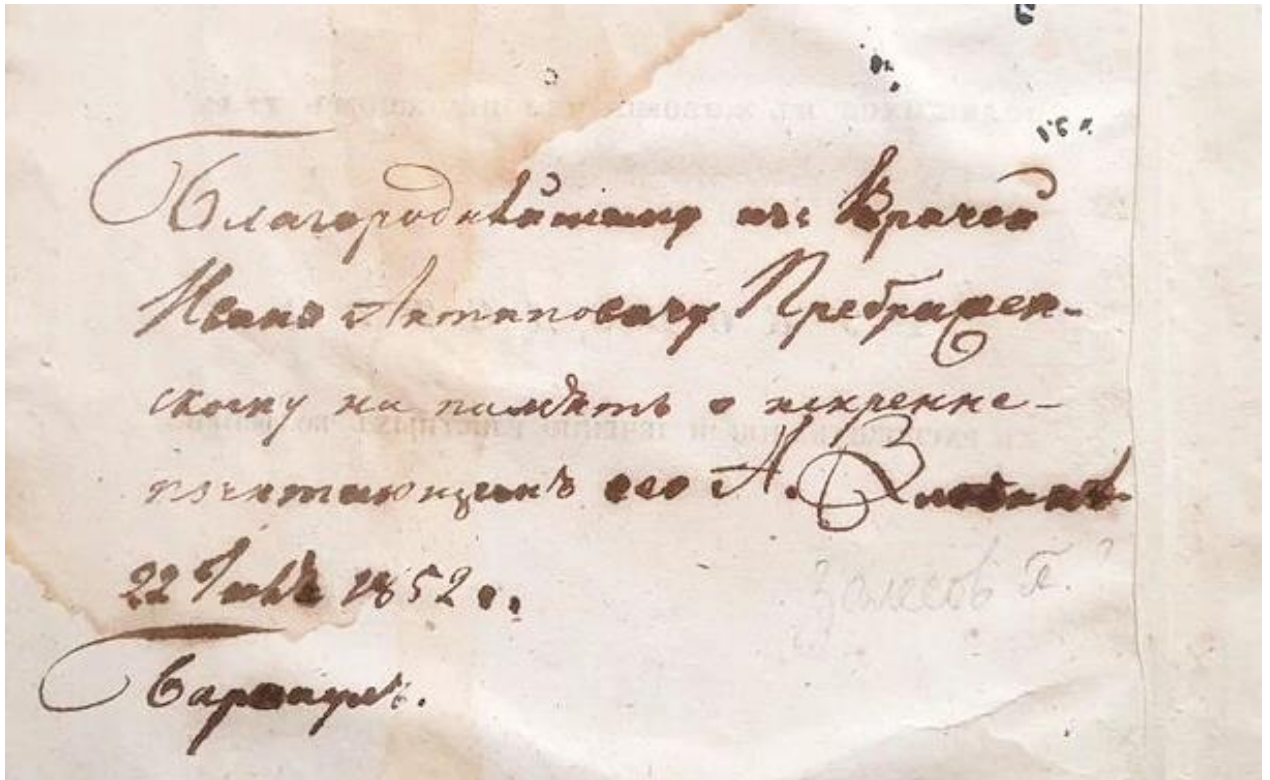 Благороднѣйшему изъ Врачей
Ивану Антиповичу Пребражен-
скому на память о искренно-
почитающемъ его А.
22 1852 г.
Барнаулъ.